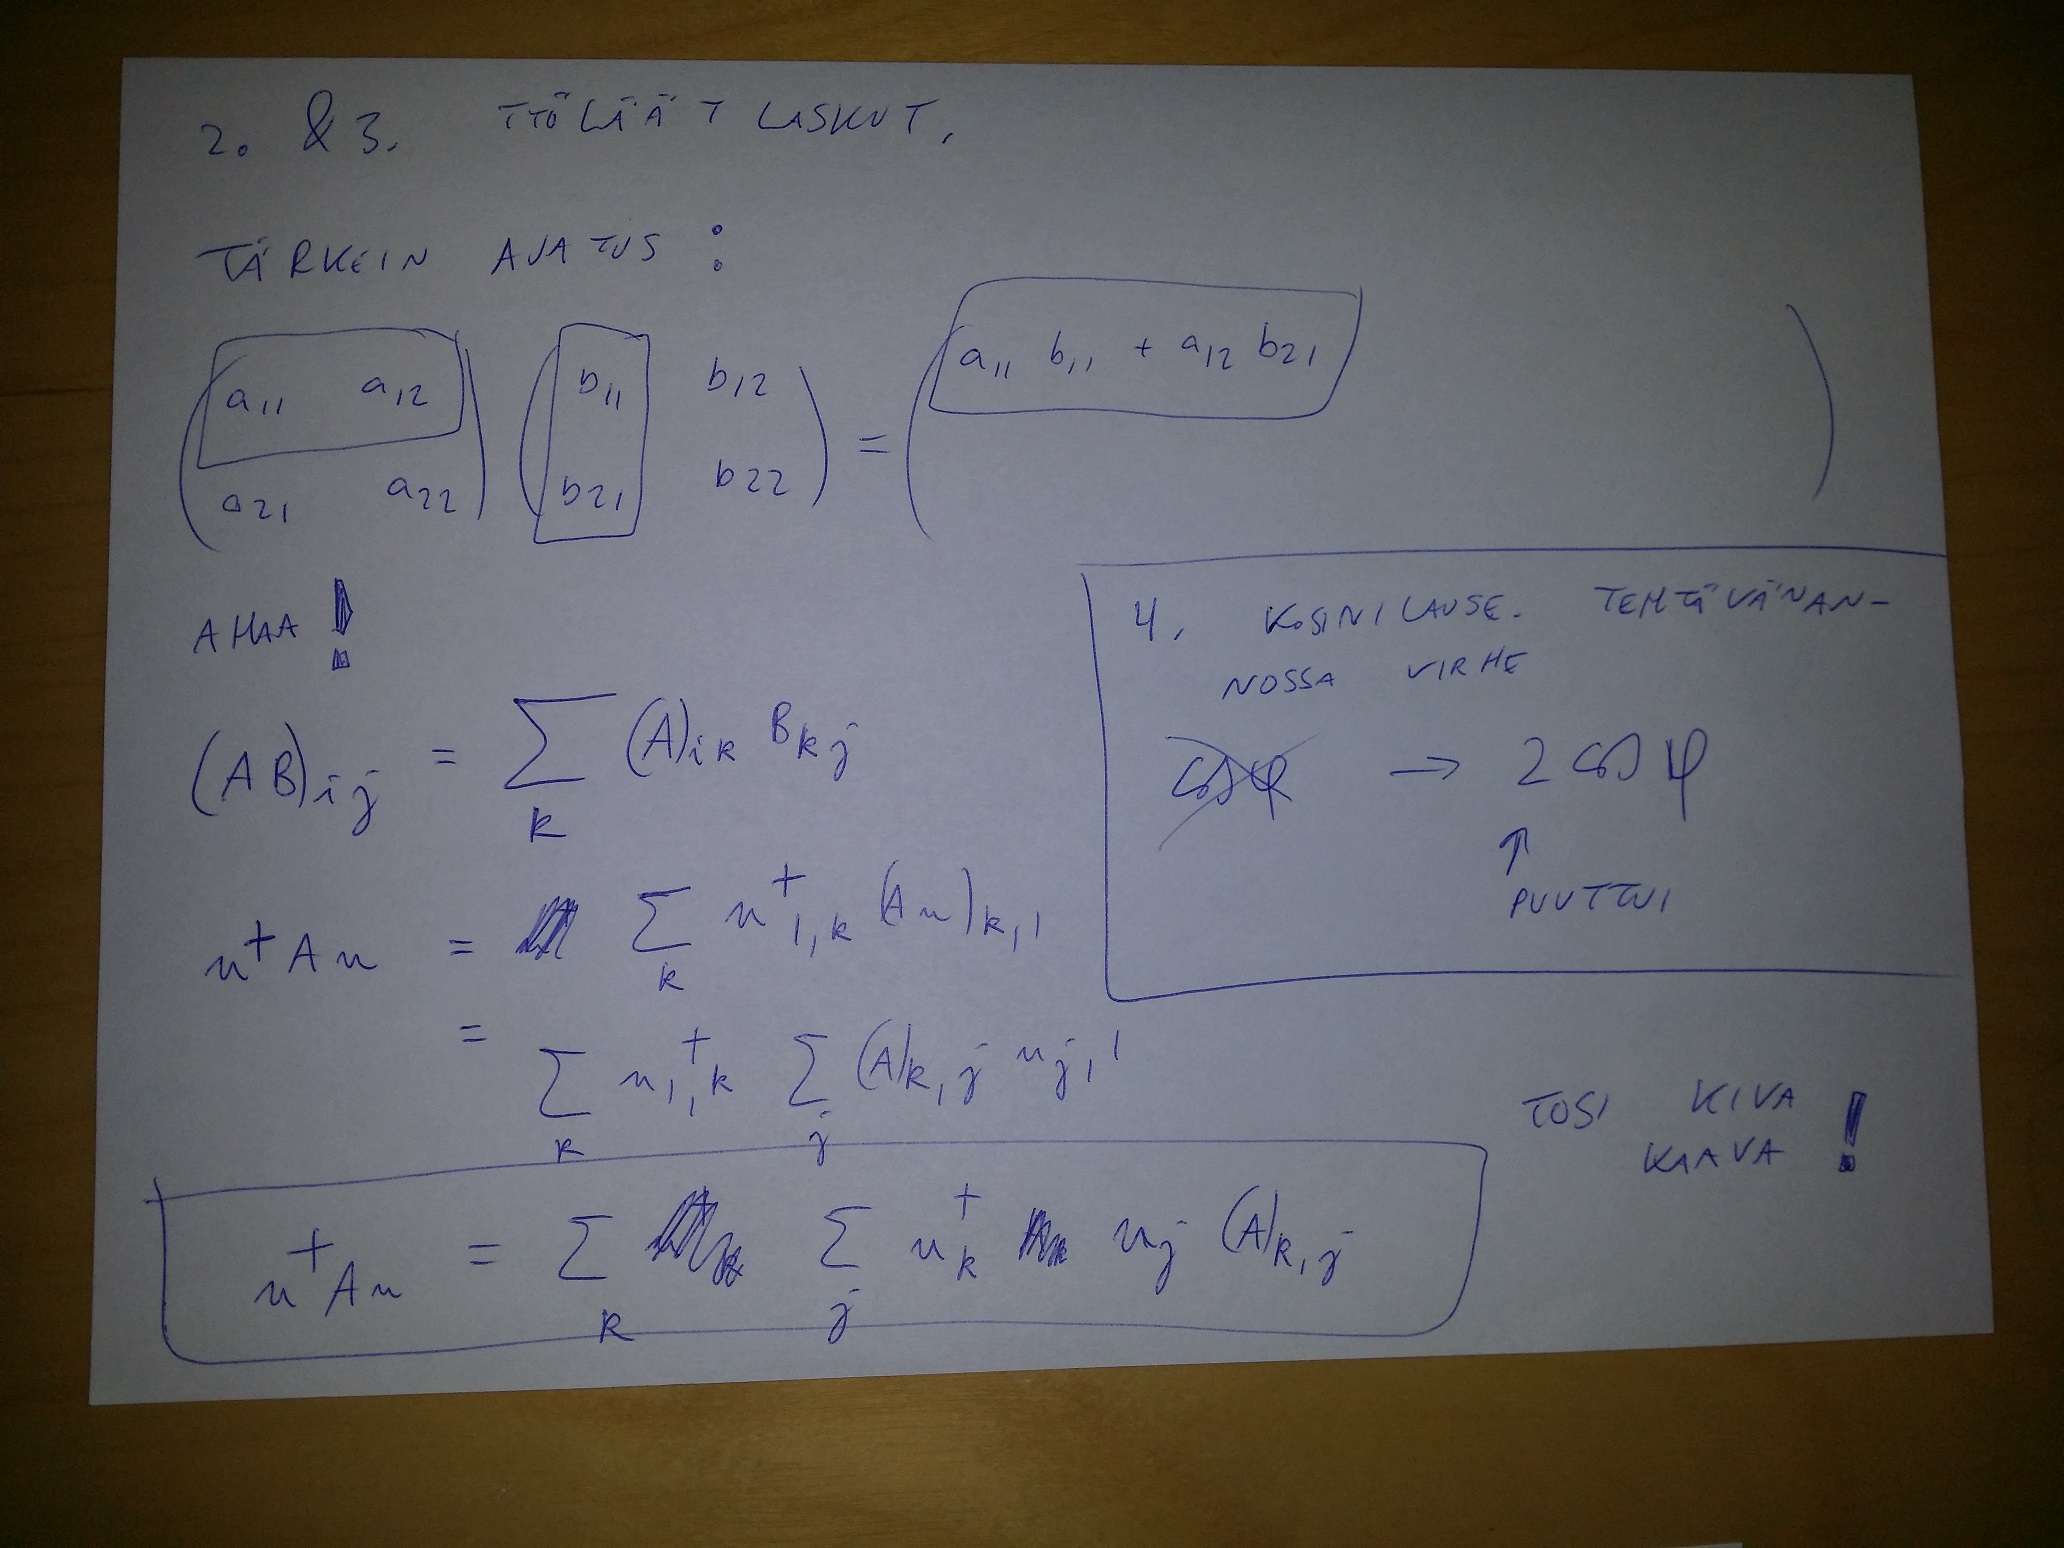 2. & 3. TYÖLÄÄT LASKUT.
TÄRKEIN AJATUS :
( a11 a12 ) ( b11 b12 ) = ( a11 b11 + a12 b21 )
a21 a22 b21 b22
AHAA !
(AB)ij = ∑k (A)ik Bkj
u†Au = ∑k u†1,k (Au)k,1
= ∑k u†1,k ∑j (A)k,j uj,1
u†Au = ∑k ∑j u†k uj (A)k,j
4. KOSINILAUSE. TEHTÄVÄNAN-
NOSSA VIRHE
cos φ → 2 cos φ
↑
PUUTTUI
TOSI KIVA
KAAVA !